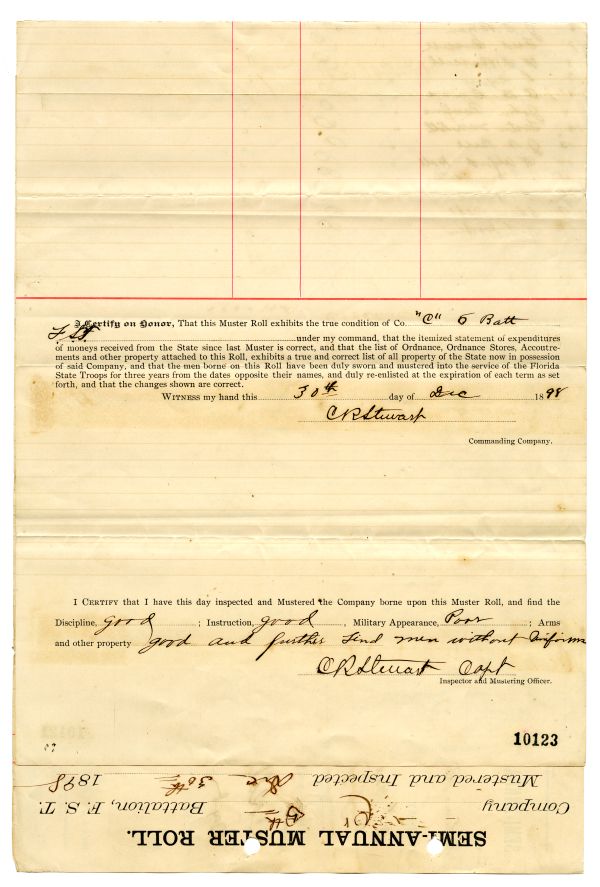 I Certify on Honor, That this Muster Roll exhibits the true condition of Co. "C" 5 Batt
F S T. under my command, that the itemized statement of expenditures
of moneys received from the State since last Muster is correct, and that the list of Ordnance, Ordnance Stores, Accoutre-
ments and other property attached to this Roll, exhibits a true and correct list of all property of the State now in possession
of said Company, and that the men borne on this Roll have been duly sworn and mustered into the service of the Florida
State Troops for three years from the dates opposite their names, and duly re-enlisted at the expiration of each term as set
forth, and that the changes shown are correct.
WITNESS my hand this 30th day of Dec 1898
C R Stewart
Commanding Company.
I CERTIFY that I have this day inspected and Mustered the Company borne upon this Muster Roll, and find the
Discipline, good ; Instruction, good , Military Appearance, Poor ; Arms
and other property good and further find men without uniforms
C R Stewart Capt
Inspector and Mustering Officer.
10123
SEMI-ANNUAL MUSTER ROLL.
Company "C" 5th Battalion, F. S. T.
Mustered and Inspected Dec 30th 1898